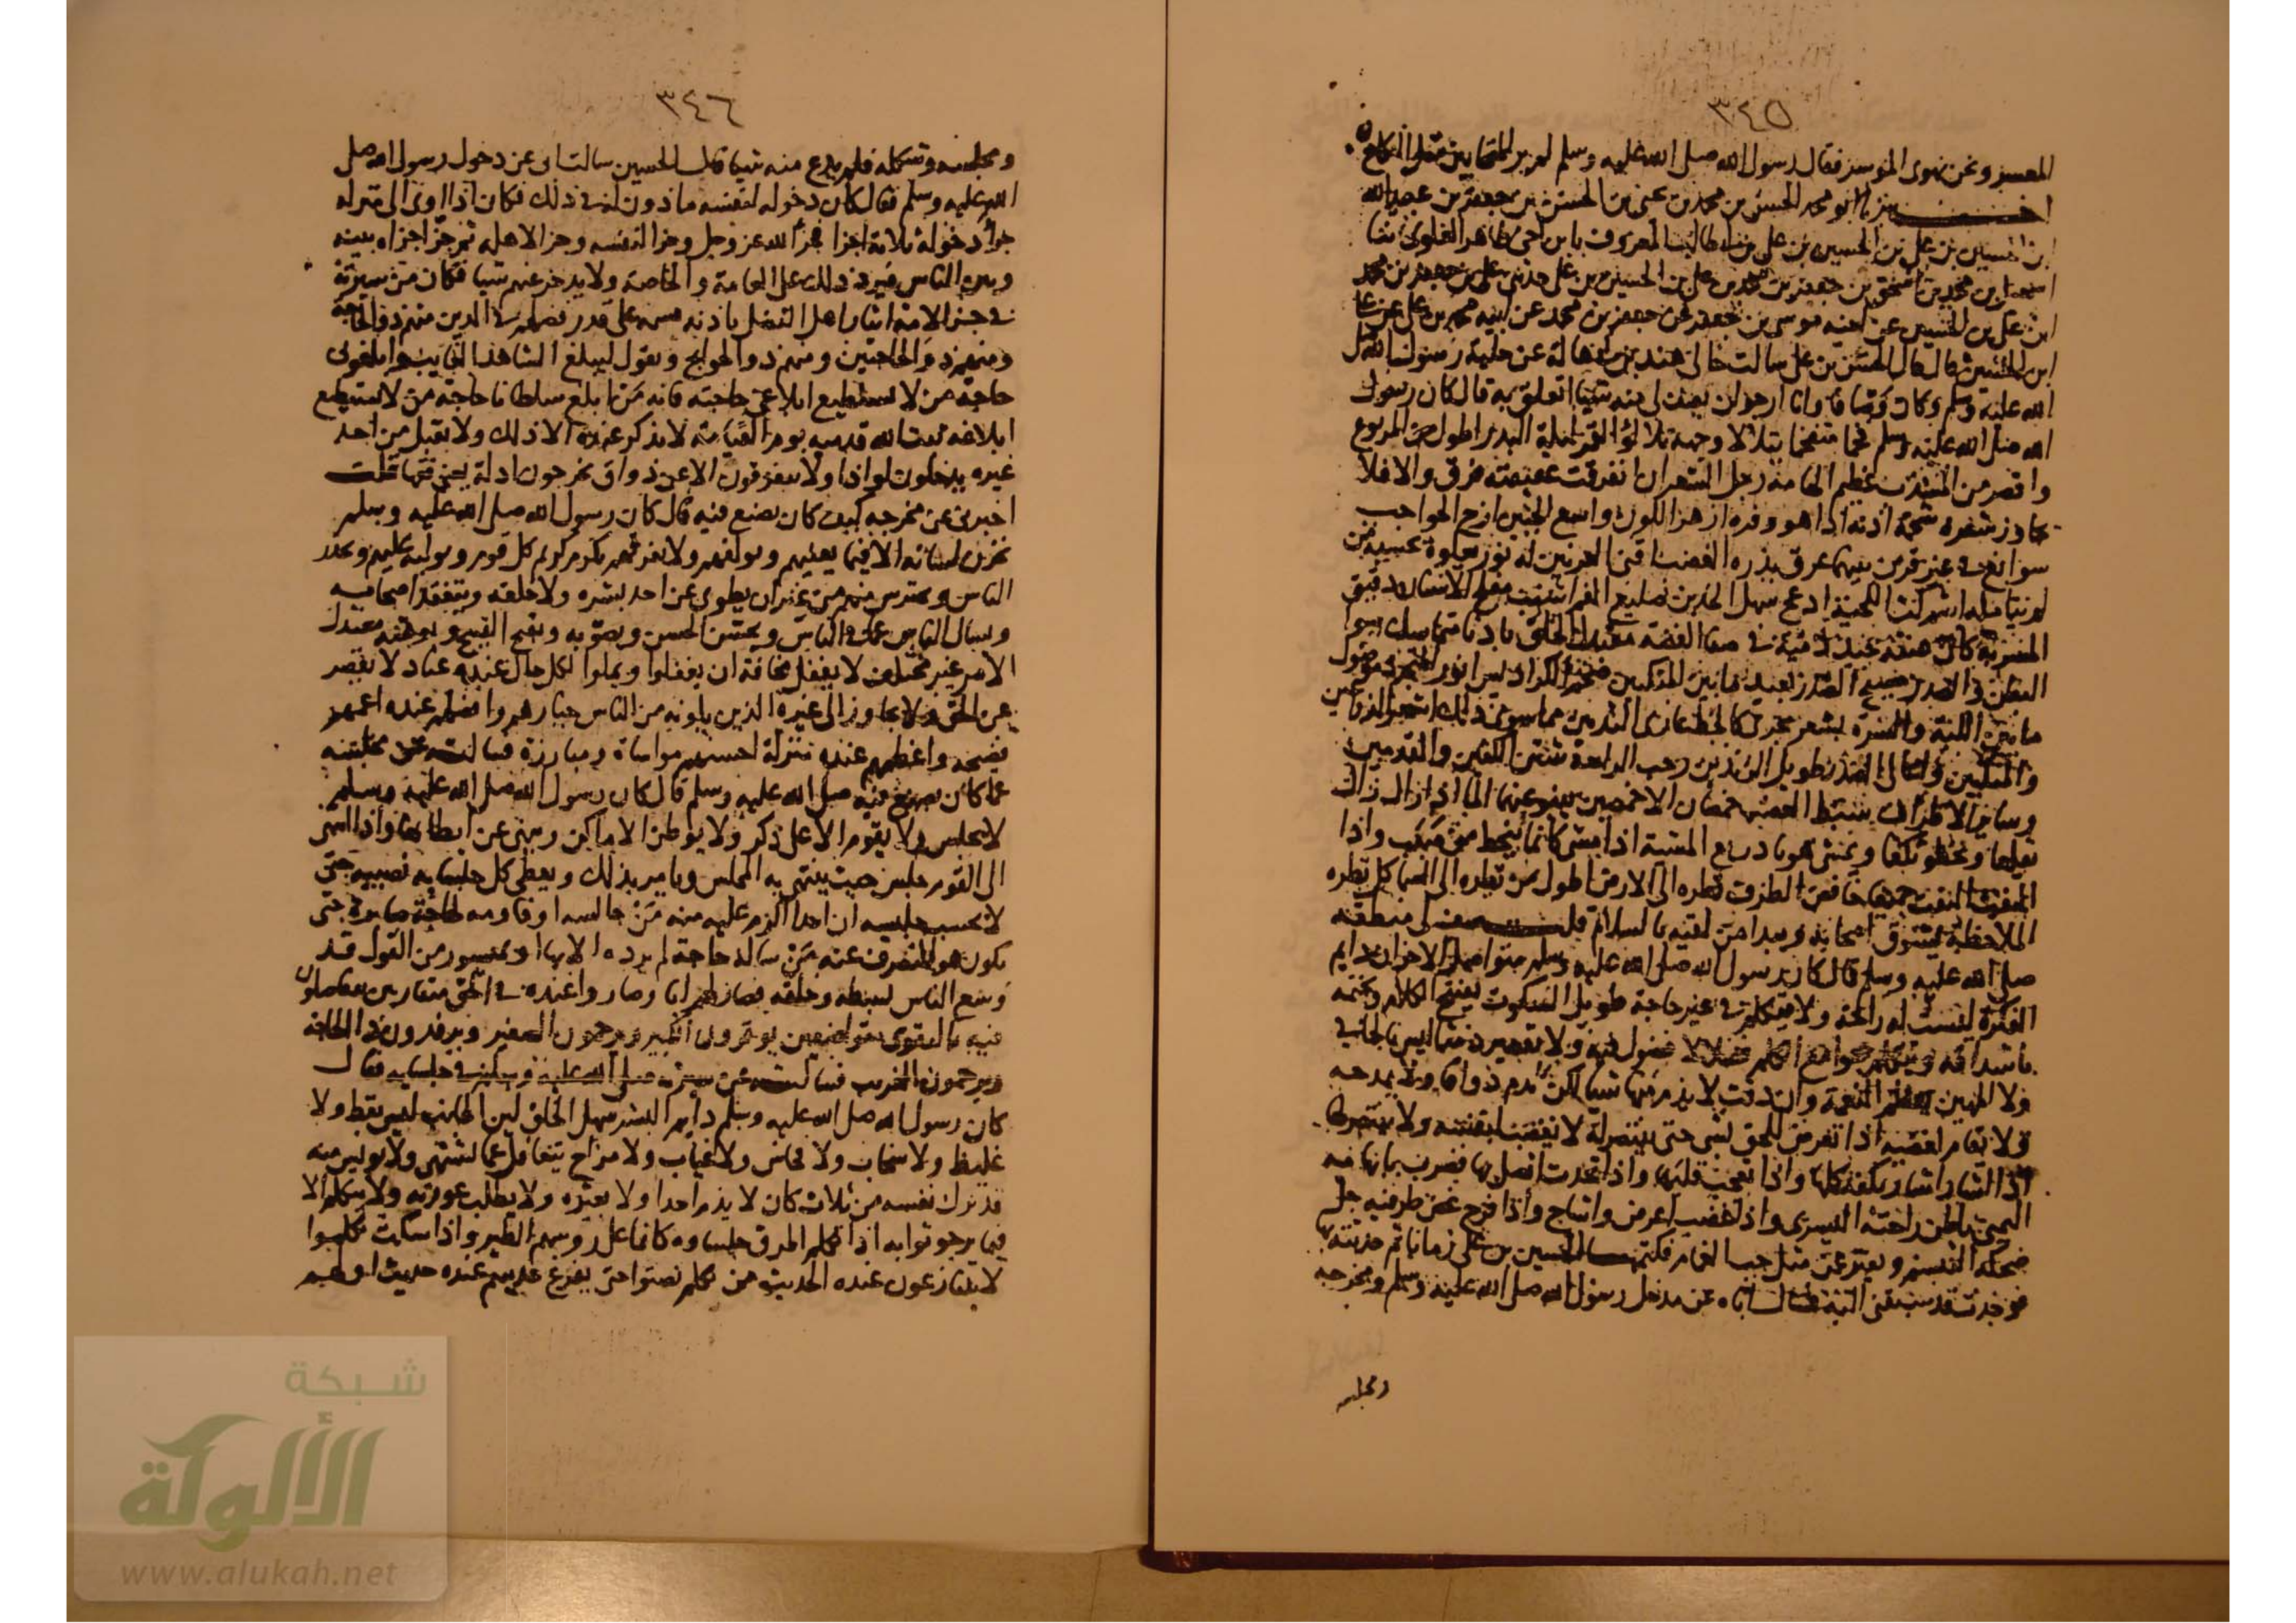 ٣٤٥
المعسر ونحن نهوى الموسر فقال رسول الله صلى الله عليه وسلم لم ير للمتحابين مثل النكاح
اخبرنا ابو محمد الحسن بن محمد بن يحيى بن الحسن بن جعفر بن عبيد الله
ابن الحسين بن علي بن الحسين بن علي بن ابي طالب المعروف بابن اخي طاهر العلوي ثنا
اسمعيل بن محمد بن اسحق بن جعفر بن محمد بن علي بن الحسين بن علي حدثني علي بن جعفر بن محمد
ابن علي بن الحسين عن اخيه موسى بن جعفر عن جعفر بن محمد عن ابيه محمد بن علي عن علي
ابن الحسين قال قال الحسن بن علي سالت خالي هند بن ابي هالة عن حلية رسول الله صلى
الله عليه وسلم وكان وصافا وانا ارجو ان يصف لي منه شيئا اتعلق به قال كان رسول
الله صلى الله عليه وسلم فخما مفخما يتلالا وجهه تلالؤ القمر ليلة البدر اطول من المربوع
واقصر من المشذب عظيم الهامة رجل الشعر ان انفرقت عقيصته فرق والا فلا
يجاوز شعره شحمة اذنه اذا هو وفره ازهر اللون واسع الجبين ازج الحواجب
سوابغ في غير قرن بينهما عرق يدره الغضب اقنى العرنين له نور يعلوه يحسبه من
لم يتامله اشم كث اللحية ادعج سهل الخدين ضليع الفم اشنب مفلج الاسنان دقيق
المسربة كان عنقه جيد دمية في صفا الفضة معتدل الخلق بادنا متماسك سوا
البطن والصدر فسيح الصدر بعيد ما بين المنكبين ضخم الكراديس انور المتجرد موصول
ما بين اللبة والسرة بشعر يجري كالخط عاري الثديين مما سوى ذلك اشعر الذراعين
والمنكبين واعالي الصدر طويل الزندين رحب الراحة شثن الكفين والقدمين
وساير الاطراف سبط العصب خمصان الاخمصين ينبو عنهما الما اذا زال زال
تقلعا ويخطو تكفا ويمشي هونا ذريع المشية اذا مشى كانما ينحط من صبب واذا
التفت التفت جميعا خافض الطرف نظره الى الارض اطول من نظره الى السما جل نظره
الملاحظة يسوق اصحابه ويبدا من لقيه بالسلام قلت صف لي منطقه
صلى الله عليه وسلم قال كان رسول الله صلى الله عليه وسلم متواصل الاحزان دايم
الفكرة ليست له راحة ولا يتكلم في غير حاجة طويل السكوت يفتتح الكلام ويختمه
باشداقه ويتكلم بجوامع الكلم فصلا لا فضول فيه ولا تقصير دمثا ليس بالجافي
ولا المهين يعظم النعمة وان دقت لا يذم منها شيا لم يكن يذم ذواقا ولا يمدحه
ولا يقام لغضبه اذا تعرض للحق بشي حتى ينتصر له لا يغضب لنفسه ولا ينتصر لها
اذا اشار اشار بكفه كلها واذا تعجب قلبها واذا تحدث اتصل بها فضرب بابهامه
اليمنى باطن راحته اليسرى واذا غضب اعرض واشاح واذا فرح غض طرفه جل
ضحكه التبسم ويفتر عن مثل حب الغمام فكتمها الحسين بن علي زمانا ثم حدثته
فوجدته قد سبقني اليه فسال اباه عن مدخل رسول الله صلى الله عليه وسلم ومخرجه
ومجلسه
٣٤٦
ومجلسه وشكله فلم يدع منه شيا قال الحسين سالت ابي عن دخول رسول الله صلى
الله عليه وسلم فقال كان دخوله لنفسه ماذون له في ذلك فكان اذا اوى الى منزله
جزأ دخوله ثلاثة اجزا جزأ لله عز وجل وجزا لنفسه وجزا لاهله ثم جزأ جزاه بينه
وبين الناس فيرد ذلك على العامة والخاصة ولا يدخر عنهم شيا فكان من سيرته
في جزء الامة ايثار اهل الفضل باذنه قسمه على قدر فضلهم في الدين منهم ذو الحاجة
ومنهم ذو الحاجتين ومنهم ذو الحوايج ويقول ليبلغ الشاهد الغايب وابلغوني
حاجة من لا يستطيع ابلاغي حاجته فانه من ابلغ سلطانا حاجة من لا يستطيع
ابلاغه ثبت الله قدميه يوم القيامة لا يذكر عنده الا ذلك ولا يقبل من احد
غيره يدخلون لواذا ولا يتفرقون الا عن ذواق يخرجون ادلة يعني فقها قلت
اخبرني عن مخرجه كيف كان يصنع فيه قال كان رسول الله صلى الله عليه وسلم
يخزن لسانه الا فيما يعنيهم ويولفهم ولا يفرقهم يكرم كريم كل قوم ويوليه عليهم ويحذر
الناس ويحترس منهم من غير ان يطوي عن احد بشره ولا خلقه ويتفقد اصحابه
ويسال الناس عما في الناس ويحسن الحسن ويصوبه ويقبح القبيح ويوهنه معتدل
الامر غير مختلف لا يغفل مخافة ان يغفلوا ويملوا لكل حال عنده عتاد لا يقصر
عن الحق ولا يجاوز الى غيره الذين يلونه من الناس خيارهم وافضلهم عنده اعمهم
نصيحة واعظمهم عنده منزلة احسنهم مواساة وموازرة فسالته عن مجلسه
عما كان يصنع فيه صلى الله عليه وسلم قال كان رسول الله صلى الله عليه وسلم
لا يجلس ولا يقوم الا على ذكر ولا يوطن الاماكن وينهى عن ايطانها واذا انتهى
الى القوم جلس حيث ينتهي به المجلس ويامر بذلك ويعطي كل جلسايه نصيبه حتى
لا يحسب جليسه ان احدا اكرم عليه منه من جالسه او قاومه لحاجة صابره حتى
يكون هو المنصرف عنه من ساله حاجة لم يرده الا بها او بميسور من القول قد
وسع الناس بسطه وخلقه فصار لهم ابا وصاروا عنده في الحق متقاربين يتفاضلون
فيه بالتقوى متواضعين يوقرون الكبير ويرحمون الصغير ويرفدون ذا الحاجة
ويرحمون الغريب فسالته عن سيرته صلى الله عليه وسلم في جلسايه فقال
كان رسول الله صلى الله عليه وسلم دايم البشر سهل الخلق لين الجانب ليس بفظ ولا
غليظ ولا سخاب ولا فحاش ولا عياب ولا مزاح يتغافل عما لا يشتهي ولا يويس منه
قد ترك نفسه من ثلاث كان لا يذم احدا ولا يعيره ولا يطلب عورته ولا يتكلم الا
فيما يرجو ثوابه اذا تكلم اطرق جلساوه كانما على روسهم الطير واذا سكت تكلموا
لا يتنازعون عنده الحديث من تكلم نصتوا حتى يفرغ حديثهم عنده حديث اولهم
شبكة
الألوكة
www.alukah.net